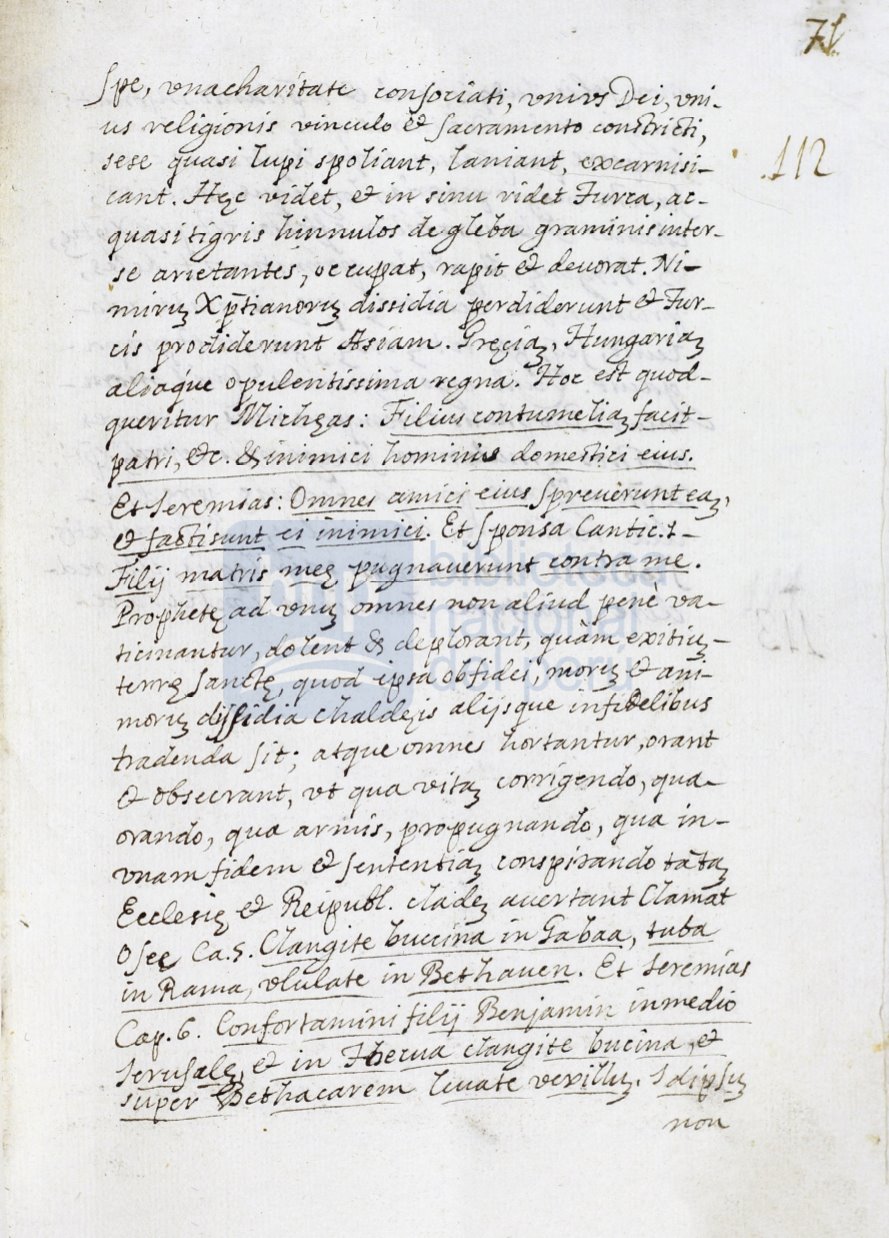 71
112
spe, vna charitate consociati, vnivs Dei, vni-
us religionis vinculo et sacramento constricti,
sese quasi lupi spoliant, laniant, excarnisi-
cant. Hęc videt, et in sinu ridet Turca, ac-
quasi tigris hinnulos de gleba graminis inter-
se arietantes, occupat, rapit et deuorat. Ni-
miruꝫ Xp̄tianoruꝫ dissidia perdiderunt et Tur-
cis prodiderunt Asiam. Gręciaꝫ, Hungariaꝫ
aliaq́ue opulentissima regna. Hoc est quod-
queritur Michęas: Filius contumeliaꝫ facit-
patri, &c. & inimici hominis domestici eius.
Et Ieremias: Omnes amici eius spreuèrunt eaꝫ,
et facti sunt ei inimici. Et sponsa Cantic. 1-
Filij matris meę pugnauerunt contra me.
Prophetę ad vnuꝫ omnes non aliud pene va-
ticinantur, dolent & deplorant, quàm exitiuꝫ-
terrę sanctę, quod ipsa obfidei, moruꝫ et ani-
moruꝫ dissidia chaldęis alijsque infidelibus
tradenda sit; atque omnes hortantur, orant
et obsecrant, vt qua vitaꝫ corrigendo, qua-
orando, qua armis, propugnando, qua in-
vnam fidem et sententiaꝫ conspirando tātaꝫ
Ecclesię et Reipubl. cladeꝫ auertant Clamat
Oseę Ca. 5. Clangite buccina in Gabaa, tuba
in Rama, vlulate in Bethauen. Et Ieremias
Cap. 6. Confortamini filij Benjamin in medio
Ierusaleꝫ, et in Thecua clangite bucina, et
super Bethacarem leuate vexilluꝫ. Idipsuꝫ
non
biblioteca
nacional
del perú